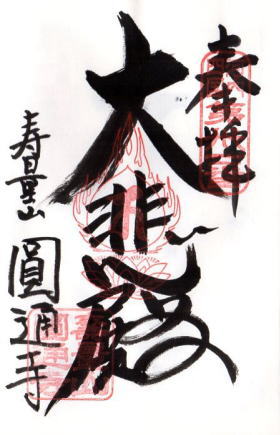 奉拝
大悲殿
寿量山
圓通寺